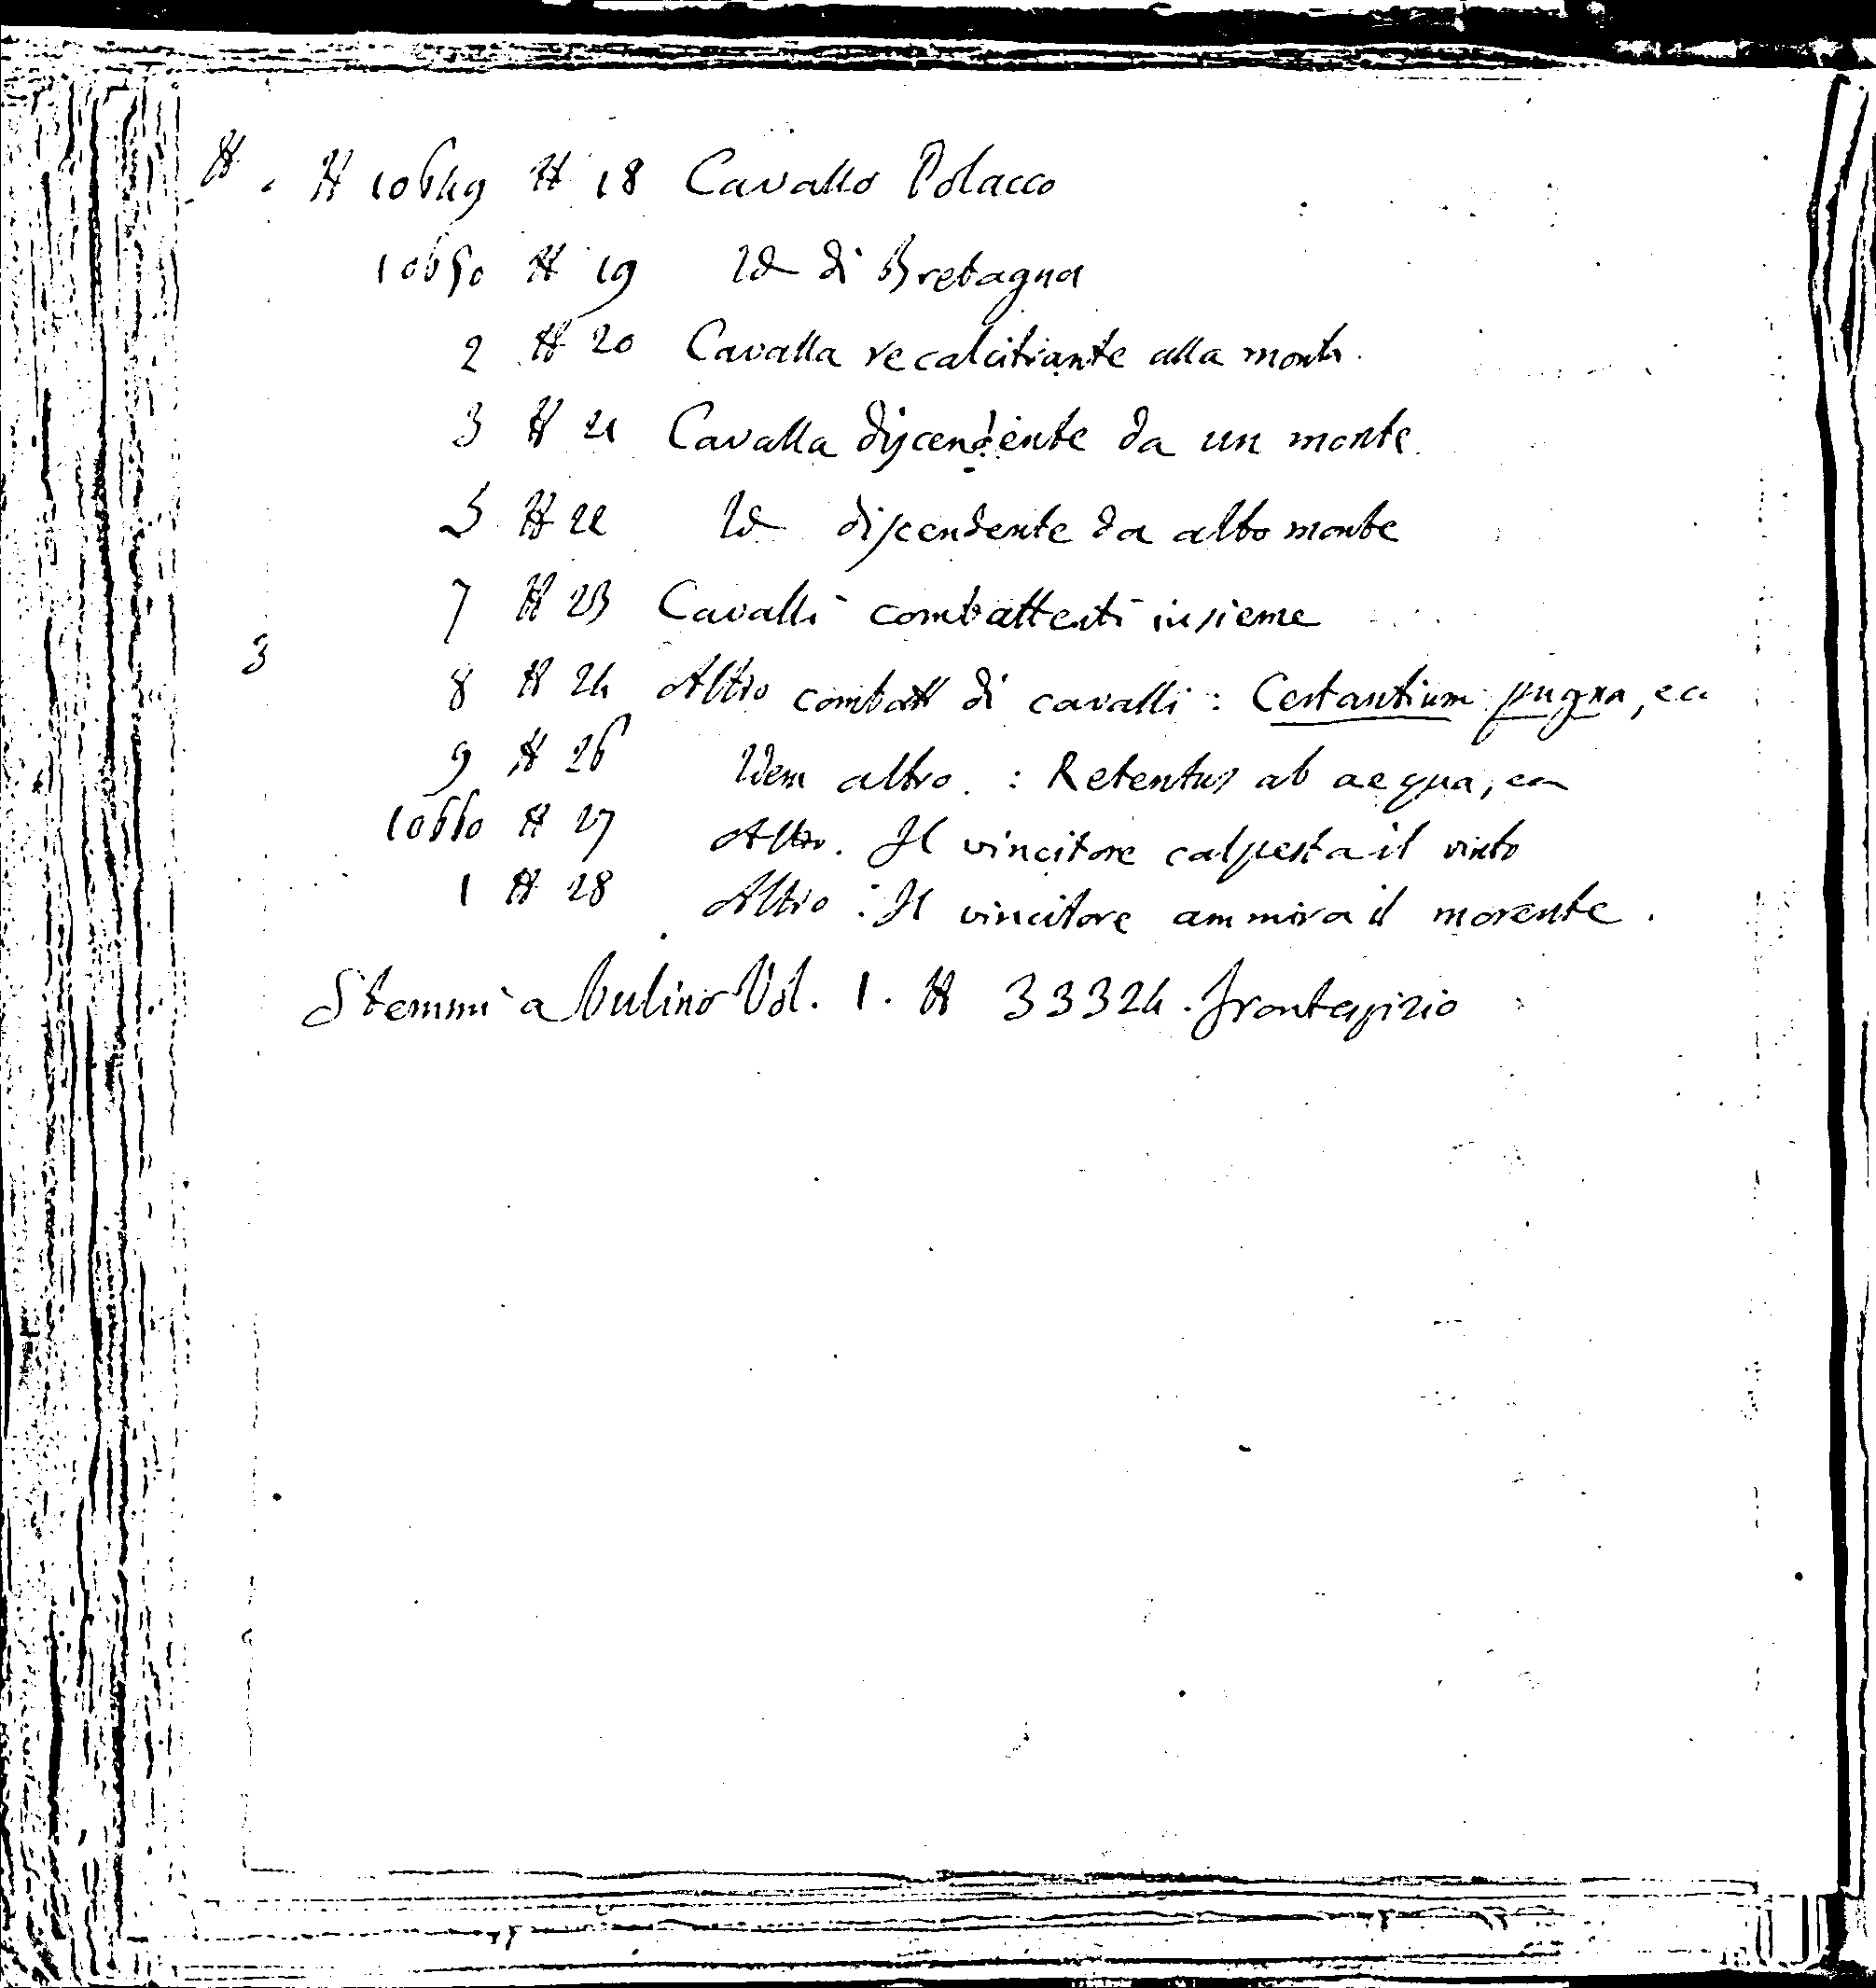 N . N 10649 N 18 Cavallo Polacco
10650 N 19 Id di Bretagna
2 N 20 Cavalla recalcitrante alla monta.
3 N 21 Cavalla discendente da un monte.
5 N 22 Id discendente da alto monte
7 N 23 Cavalli combattenti insieme
3
8 N 24 Altro combatt di cavalli : Certantium pugna, ec.
9 N 26 Idem altro. : Retentus ab aequa, ec
10660 N 27 Altro. Il vincitore calpesta il vinto
1 N 28 Altro : Il vincitore ammira il morente.
Stemmi a bulino Vol. 1. N 33324. Frontespizio